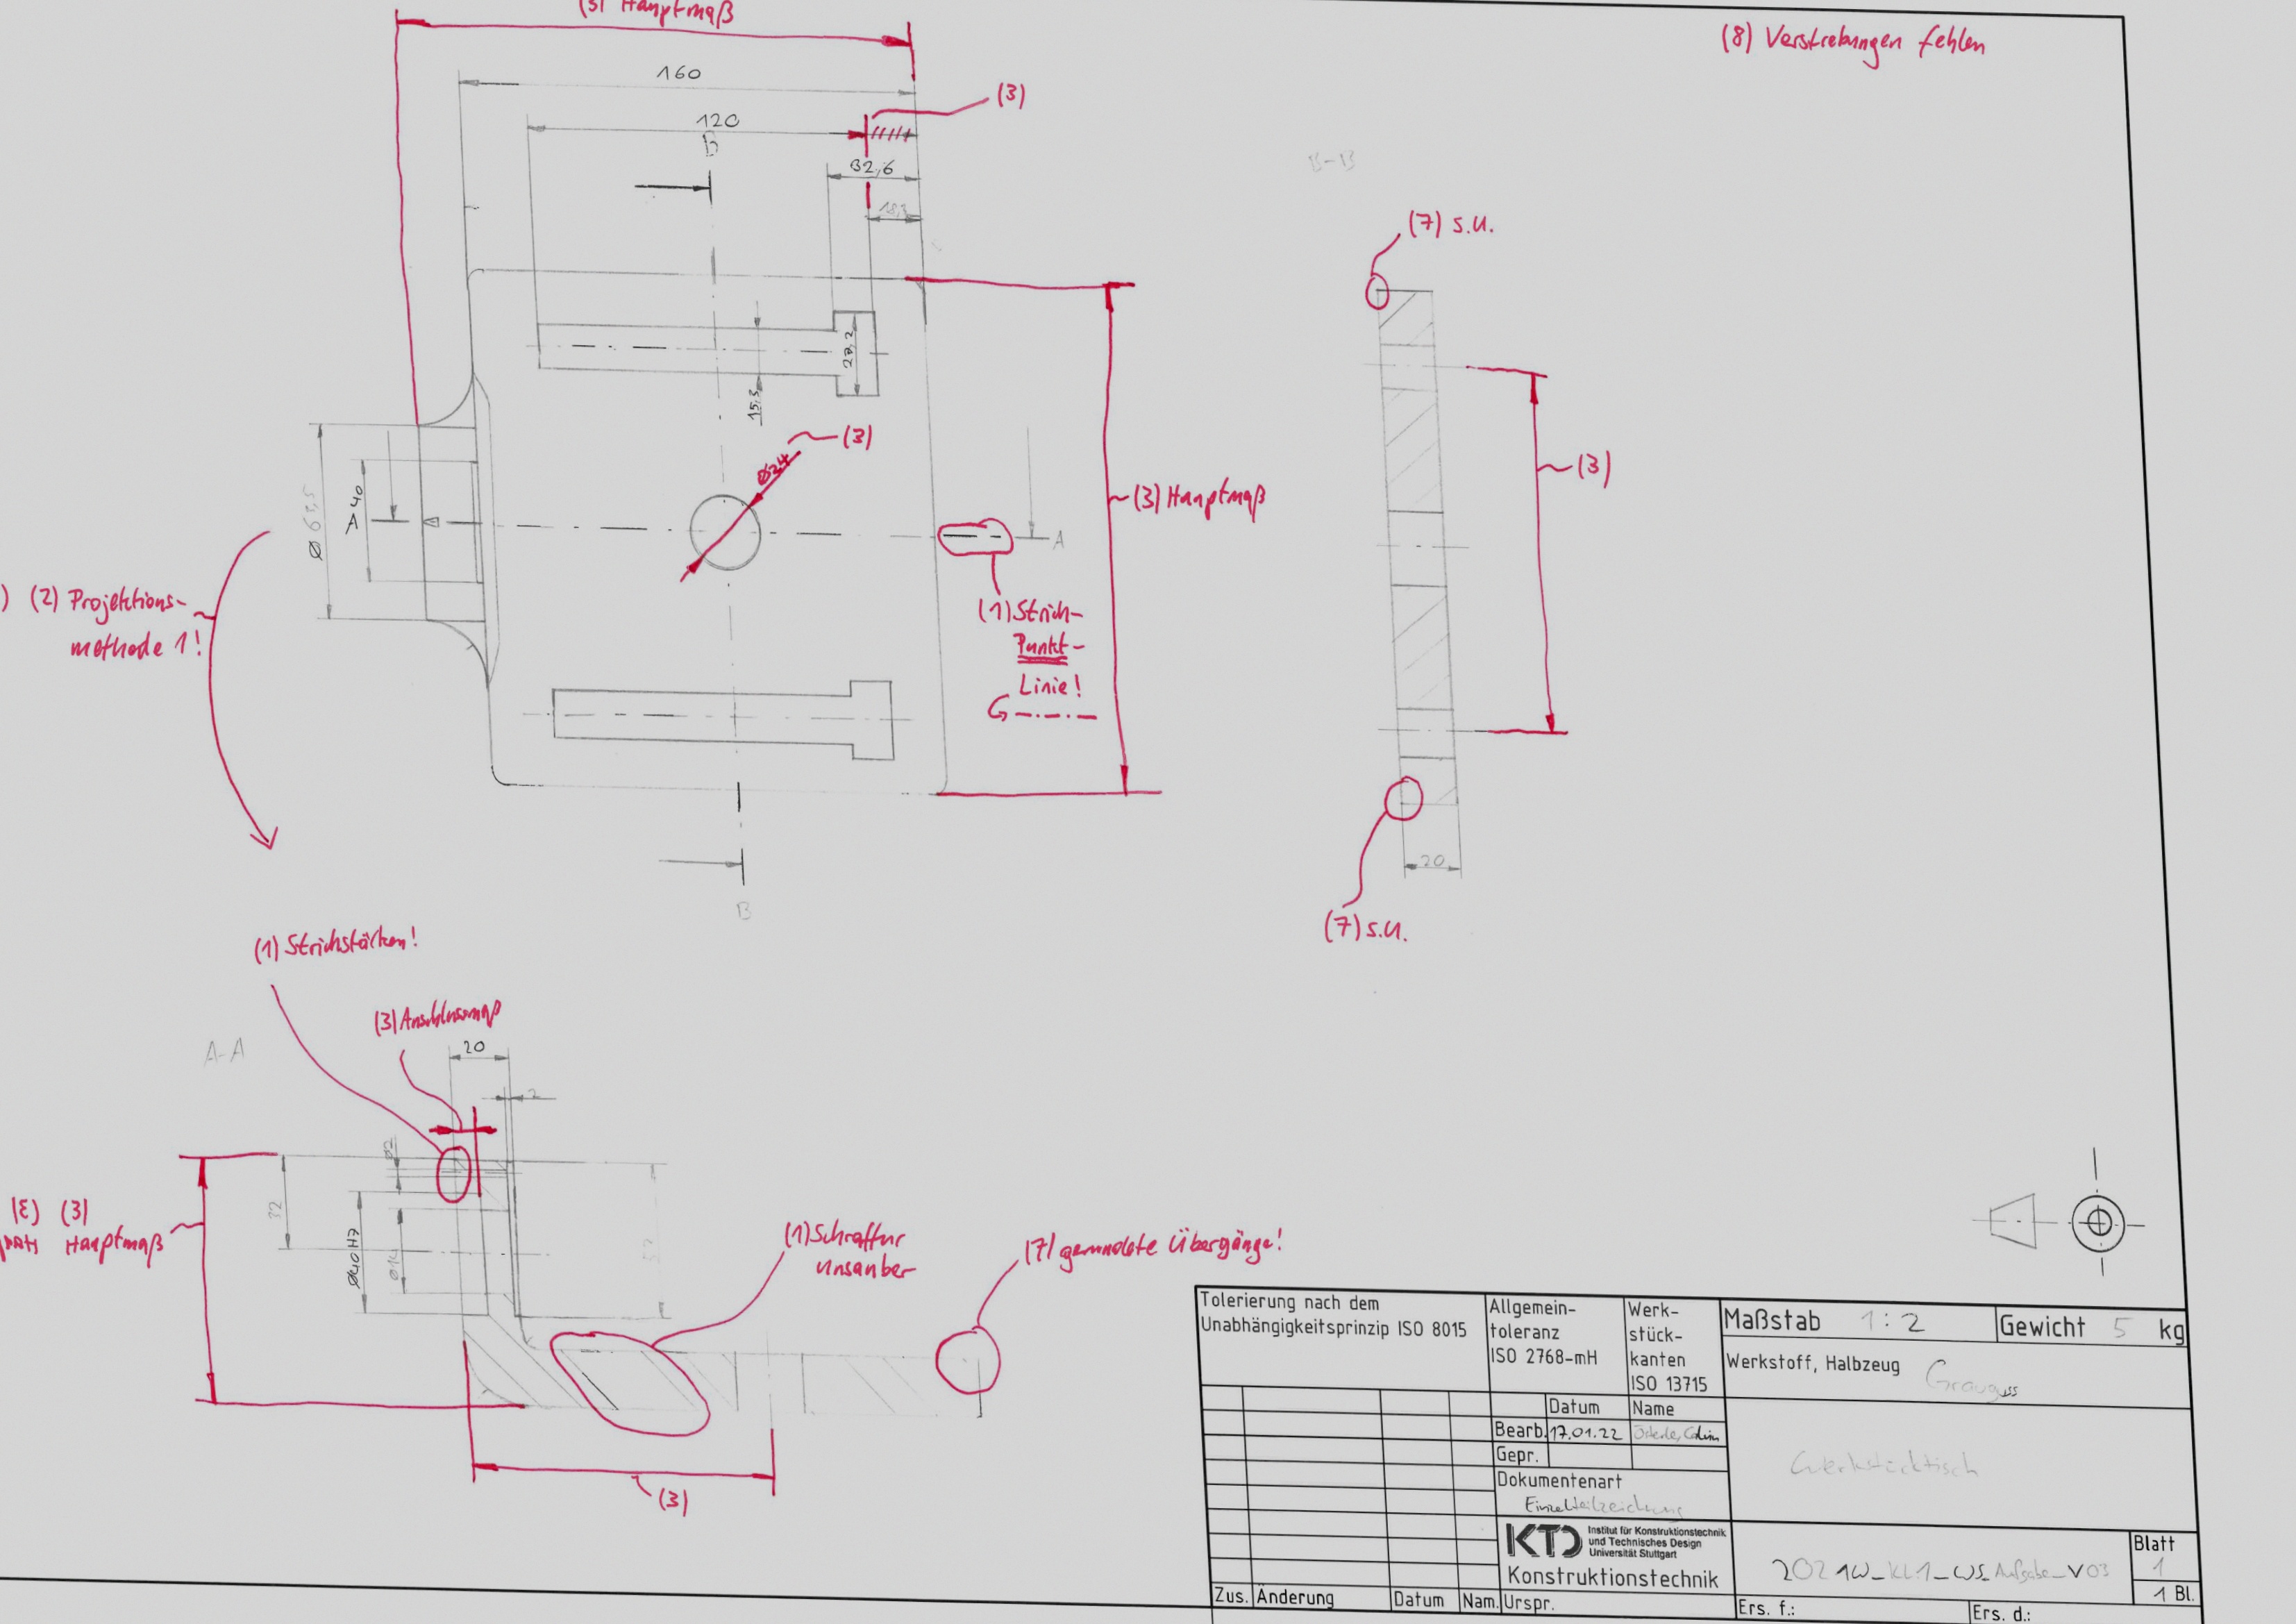 (3) Hauptmaß
(8) Verstrebungen fehlen
160
(3)
120
B
B-B
32,6
18,3
(7) s.u.
28,2
15,3
(3)
ø24
(3)
(3) Hauptmaß
40
A
A
(1) Strich-
Punkt-
Linie!
(2) Projektions-
methode 1!
20
B
(7) s.u.
(1) Strichstärken!
(3) Anschlussmaß
A-A
20
2
32
(3)
Hauptmaß
Ø40H7
(1) Schraffur
unsauber
(7) gerundete Übergänge!
(3)
Tolerierung nach dem
Unabhängigkeitsprinzip ISO 8015
Allgemein-
toleranz
ISO 2768-mH
Werk-
stück-
kanten
ISO 13715
Maßstab 1:2
Gewicht 5 kg
Werkstoff, Halbzeug Grauguss
Datum Name
Bearb. 17.01.22
Gepr.
Dokumentenart
Einzelteilzeichnung
Werkstücktisch
KTD Institut für Konstruktionstechnik
und Technisches Design
Universität Stuttgart
Konstruktionstechnik
2021W_KL1_WS_Aufgabe_V03
Blatt
1
1 Bl.
Zus. Änderung Datum Nam. Urspr. Ers. f.: Ers. d.: